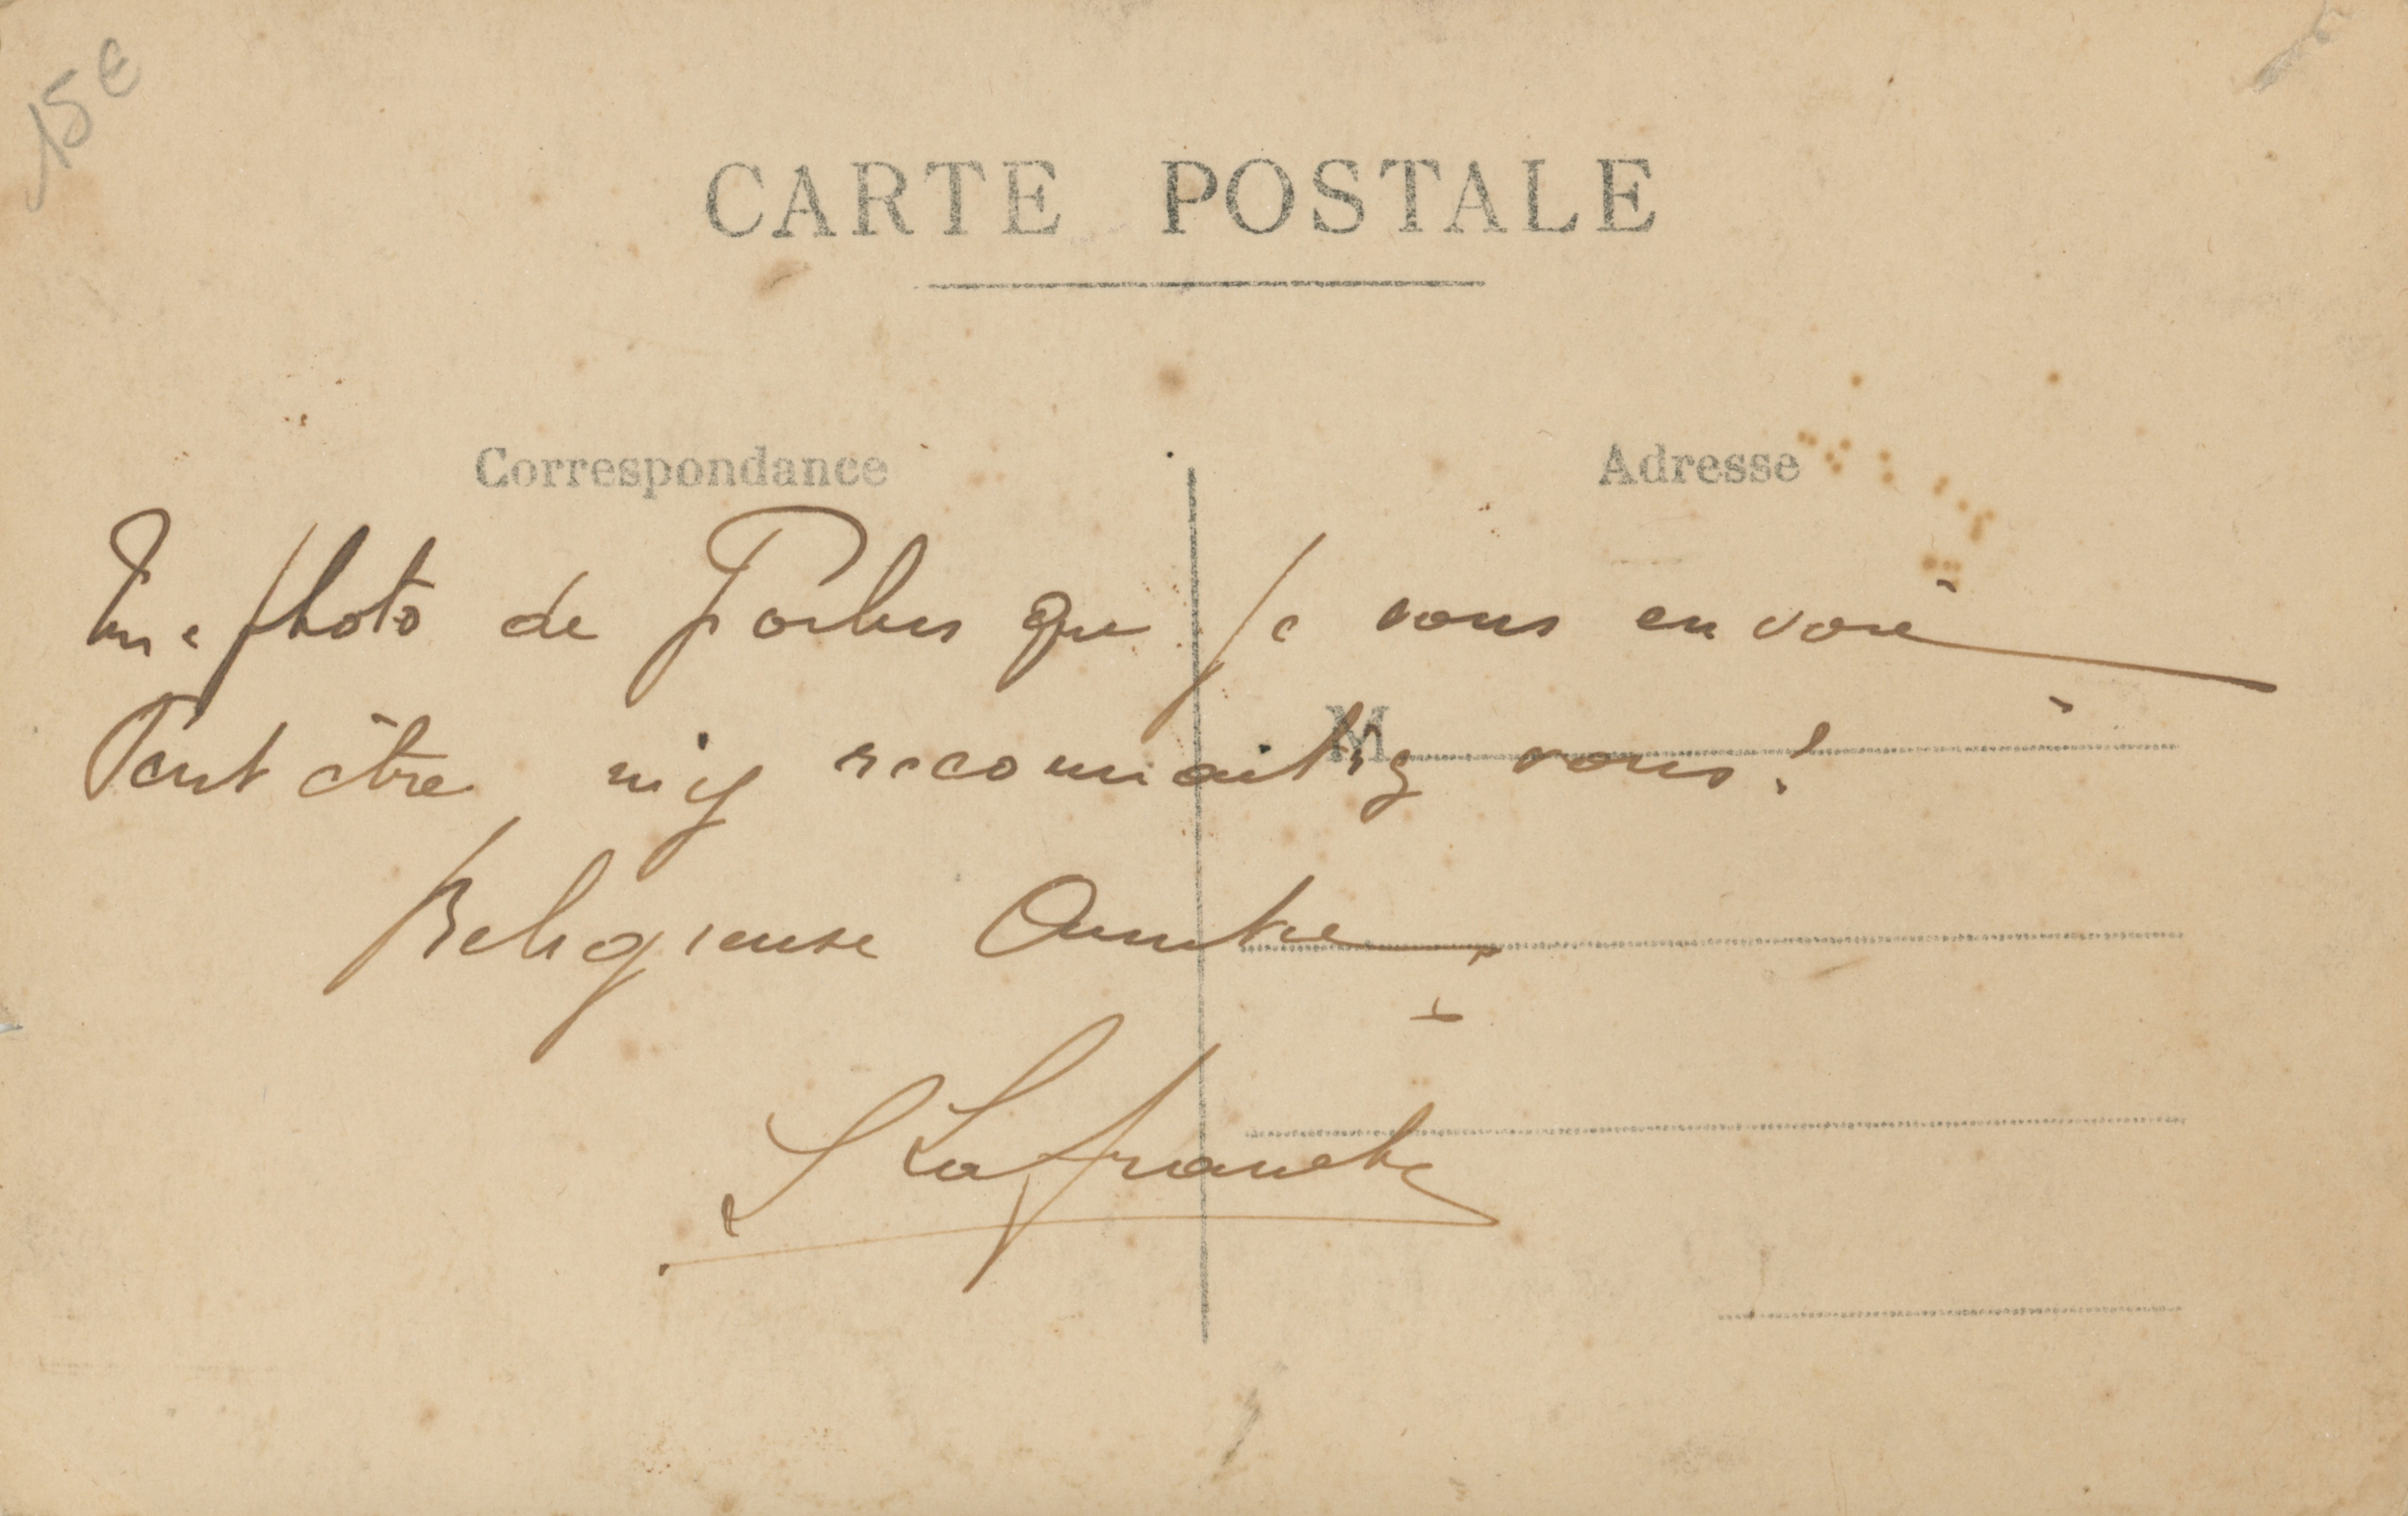 15 €
CARTE POSTALE
Correspondance
Adresse
Une photo de Poilus que je vous envoie
Peut être m'y reconnaitrez vous!
M
Religieuse
L Lafranche